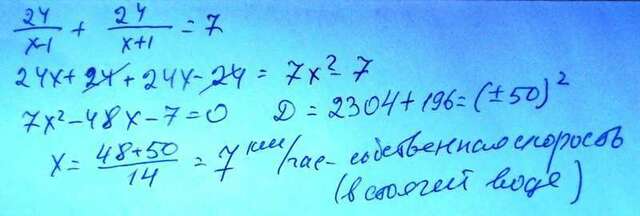 24/(x-1) + 24/(x+1) = 7
24x+24+24x-24 = 7x²-7
7x²-48x-7=0 D = 2304+196=(±50)²
x = (48+50)/14 = 7 км/час - собственная скорость
(в стоячей воде)